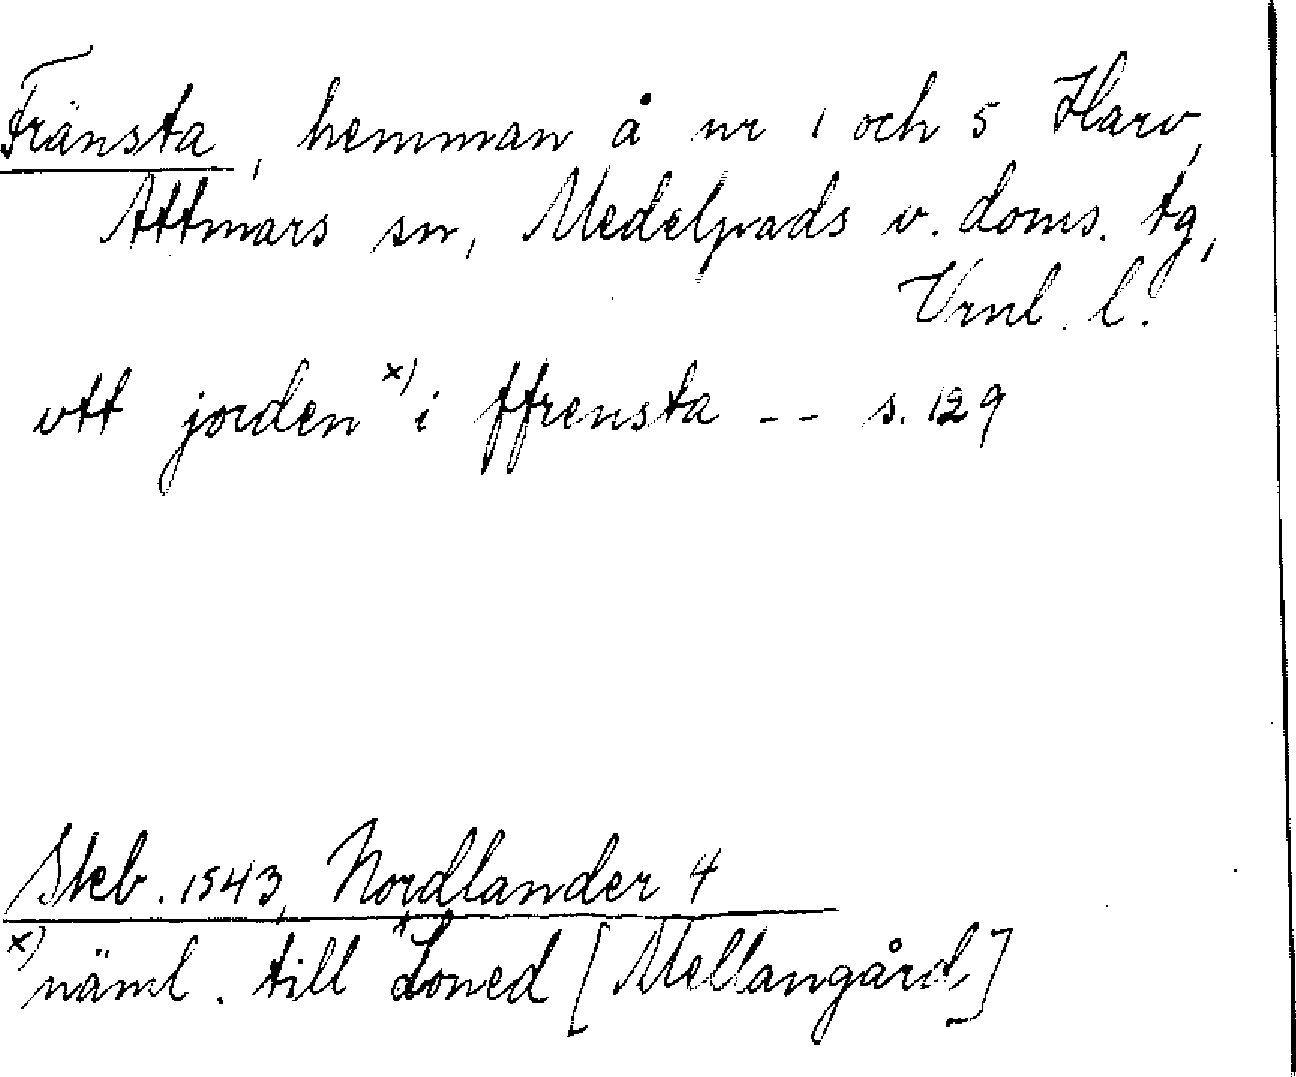 Fränsta, hemman å nr 1 och 5 Harv,
Attmars sn, Medelpads v. doms. tg,
Vrnl. l.
vtt jorden x) i ffrensta -- s. 129
Skeb. 1543, Nordlander 4
x) näml. till Loned [Mellangård]